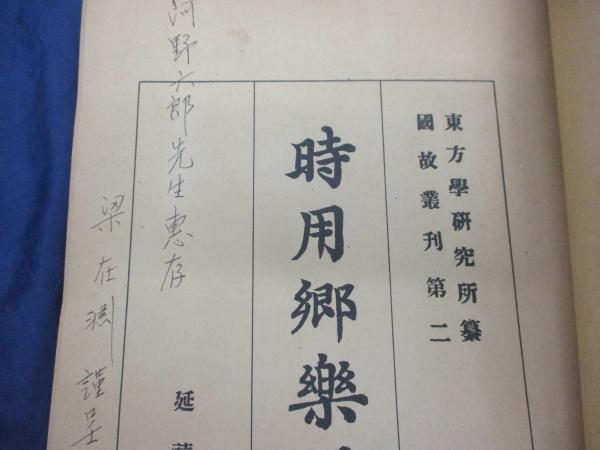 東方學研究所纂
國故叢刊第二
時用鄕樂
延
河野六郎先生惠存
梁在淵謹呈